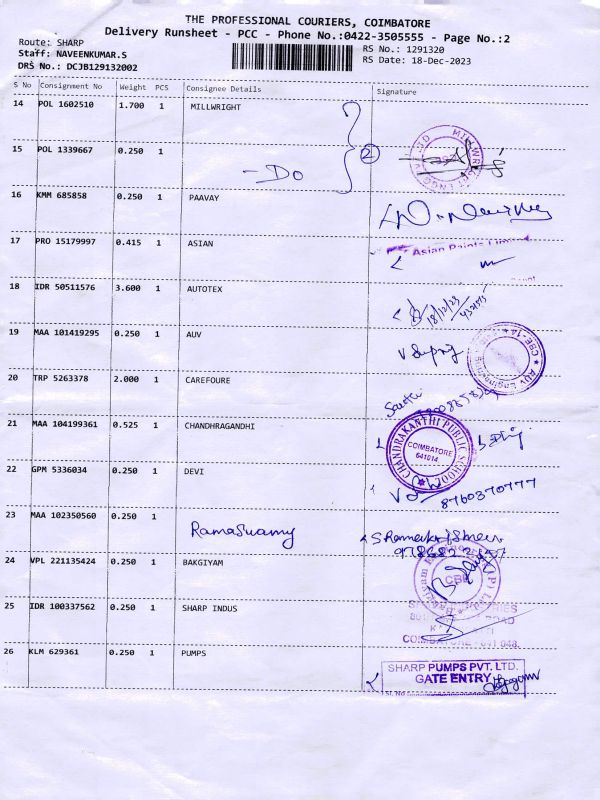 THE PROFESSIONAL COURIERS, COIMBATORE
Delivery Runsheet - PCC - Phone No.:0422-3505555 - Page No.:2
Route: SHARP
Staff: NAVEENKUMAR.S
DRS No.: DCJB129132002
RS No.: 1291320
RS Date: 18-Dec-2023
S No Consignment No Weight PCS Consignee Details Signature
14 POL 1602510 1.700 1 MILLWRIGHT
15 POL 1339667 0.250 1
- Do
2
16 KMM 685858 0.250 1 PAAVAY
17 PRO 15179997 0.415 1 ASIAN
Asian Paints
18 IDR 50511576 3.600 1 AUTOTEX
18/12/23
19 MAA 101419295 0.250 1 AUV
CBE-14
20 TRP 5263378 2.000 1 CAREFOURE
21 MAA 104199361 0.525 1 CHANDHRAGANDHI
CHANDRAKANTHI PUBLIC SCHOOL
COIMBATORE
641014
22 GPM 5336034 0.250 1 DEVI
8760370777
23 MAA 102350560 0.250 1 Ramaswamy
24 VPL 221135424 0.250 1 BAKGIYAM
CBE
25 IDR 100337562 0.250 1 SHARP INDUS
26 KLM 629361 0.250 1 PUMPS
SHARP PUMPS PVT. LTD.
GATE ENTRY